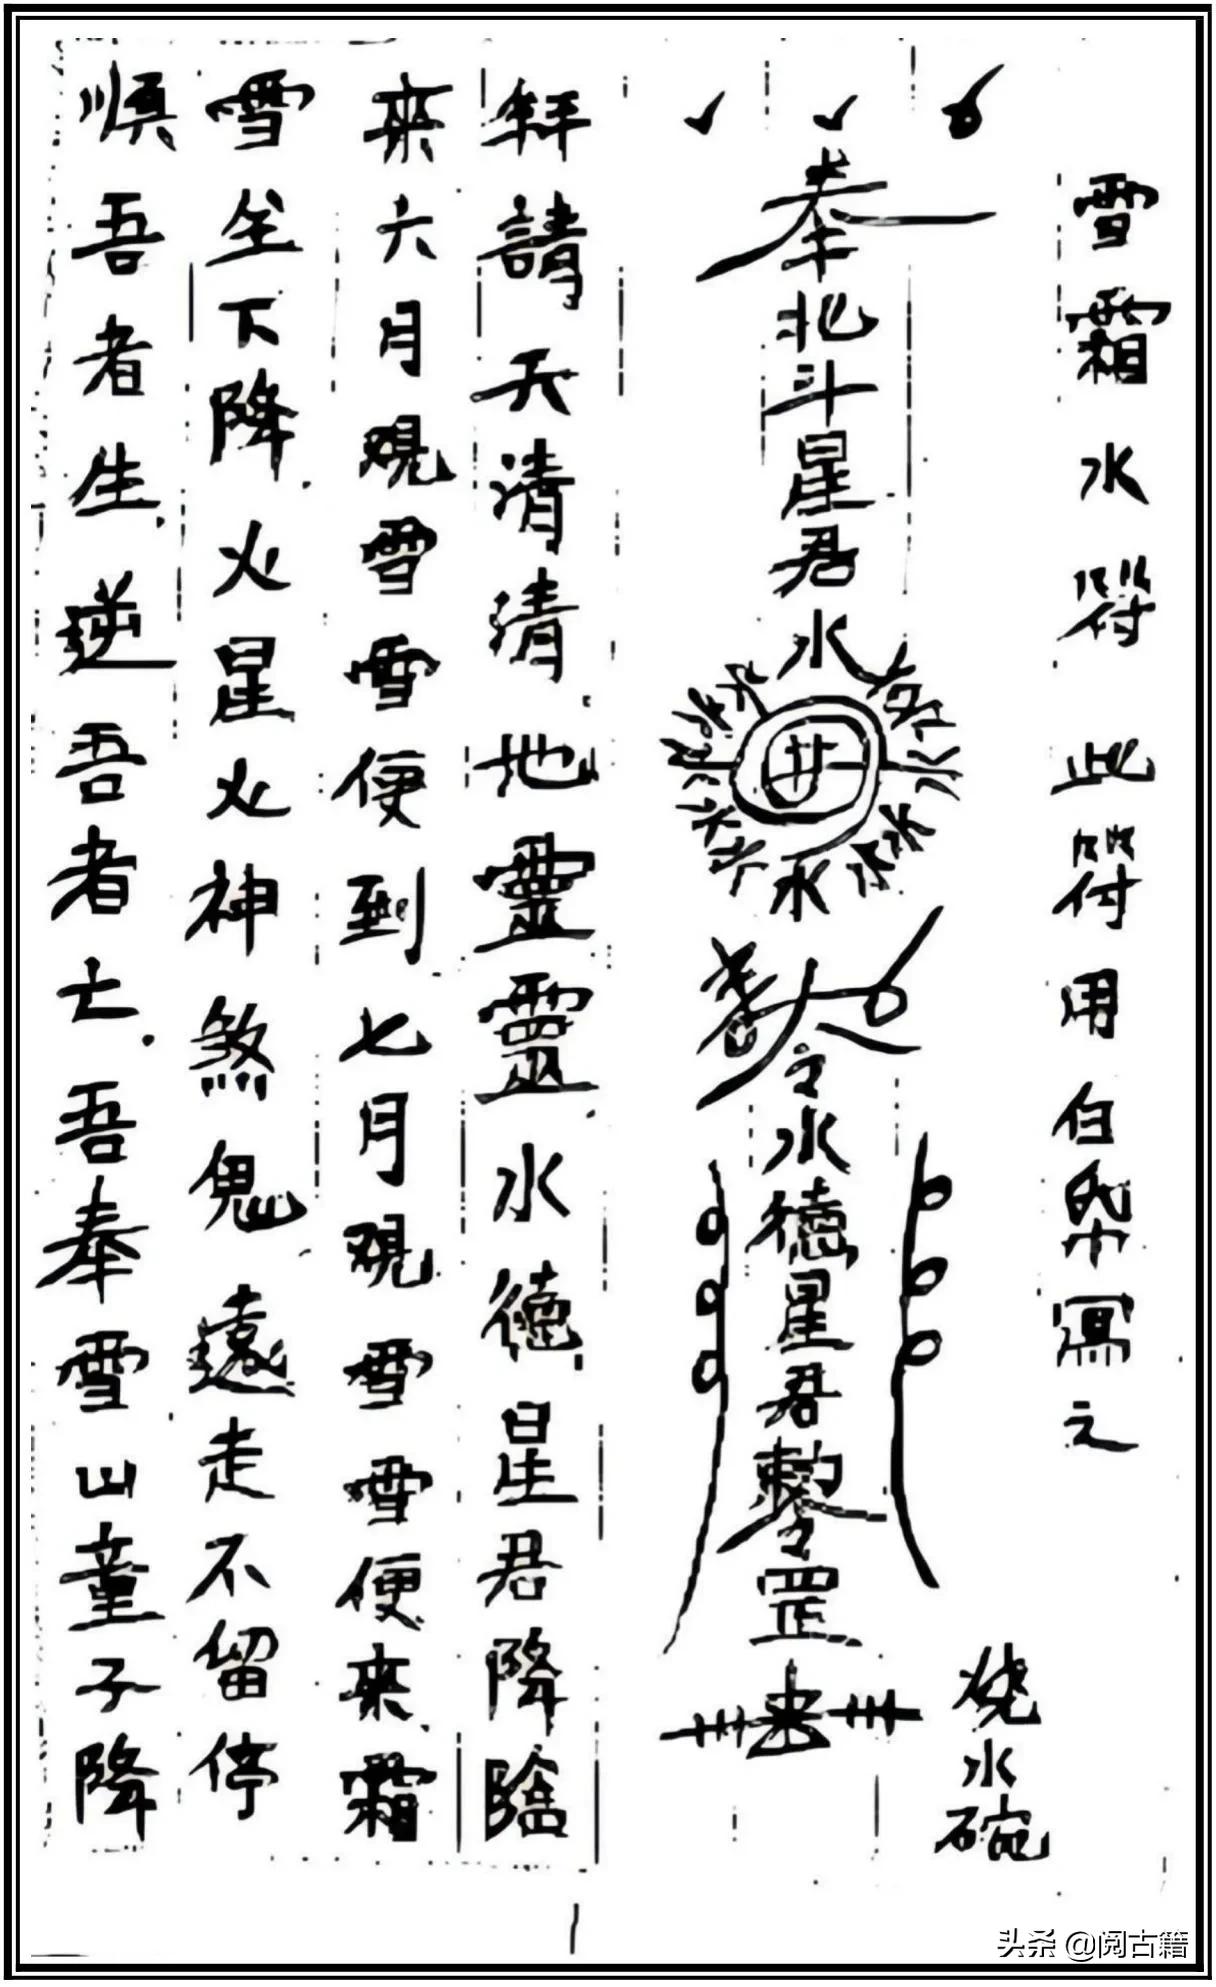 雪霜水符 此符用白紙寫之
燒水碗
奉北斗星君
水
井
水
敕令水德星君敕令罡
拜請天清清地靈靈水德星君降臨
來六月現雪雪便到七月現雪雪便來霜
雪坐下降火星火神煞鬼遠走不留停
順吾者生逆吾者亡吾奉雪山童子降
头条 @阅古籍